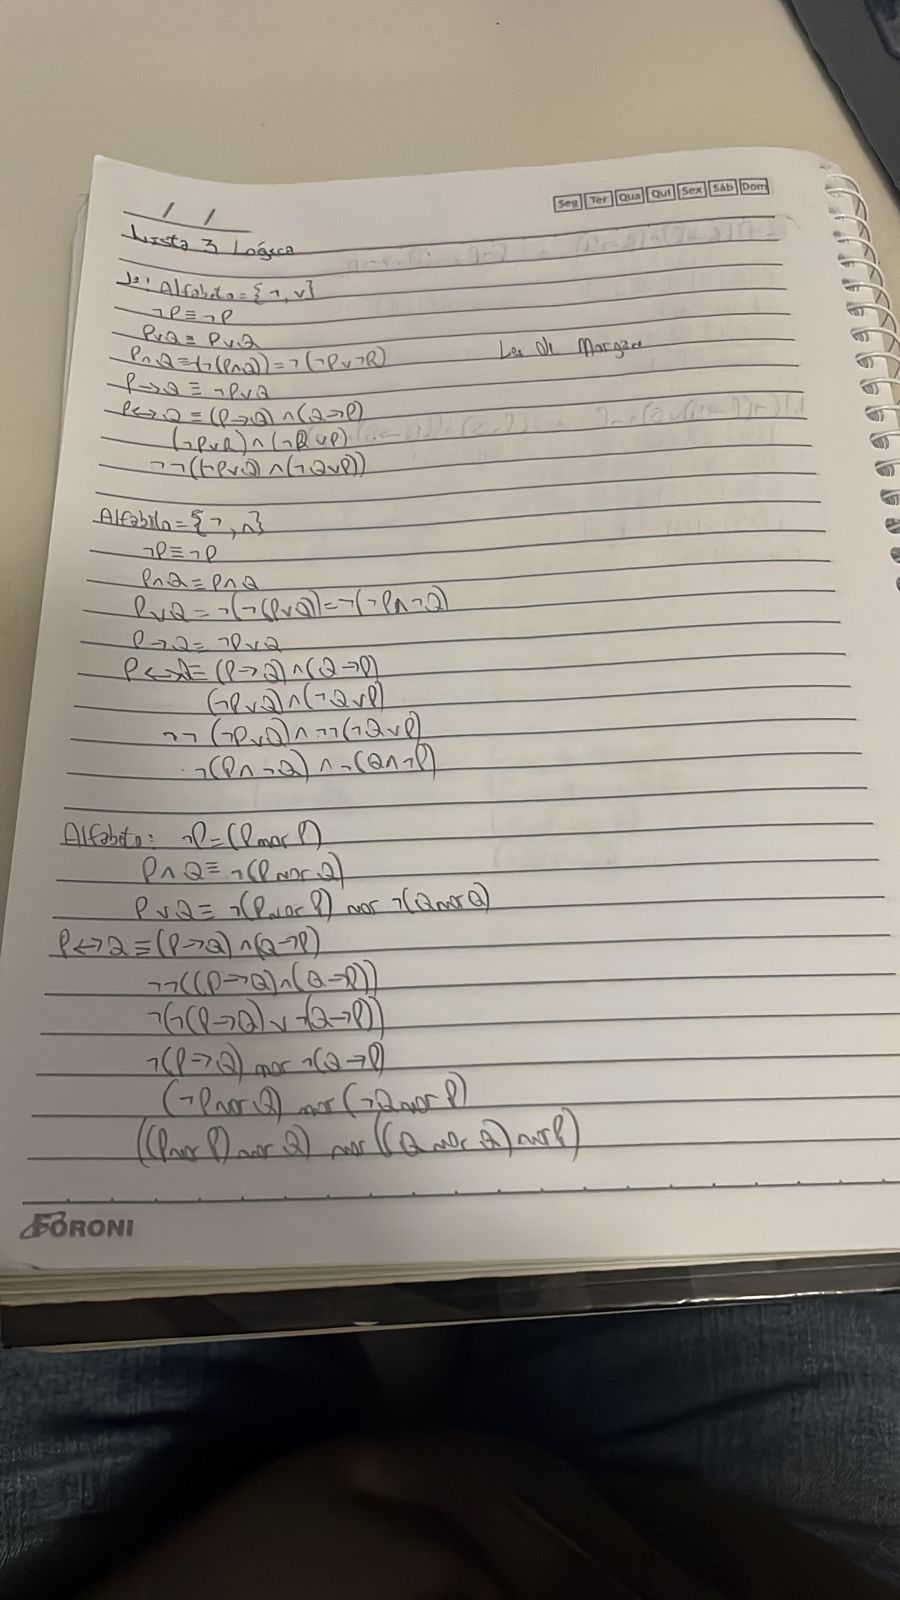 Seg Ter Qua Qui Sex Sáb Dom
/ /
Lista 3 Lógica
1º: Alfabeto = {¬, ∨}
¬P ≡ ¬P
P∨Q ≡ P∨Q
P∧Q ≡ ¬(¬(P∧Q)) = ¬(¬P∨¬Q) Lei de Morgan
P→Q ≡ ¬P∨Q
P↔Q ≡ (P→Q)∧(Q→P)
(¬P∨Q)∧(¬Q∨P)
¬¬((¬P∨Q ∧(¬Q∨P))
Alfabeto = {¬, ∧}
¬P ≡ ¬P
P∧Q = P∧Q
P∨Q = ¬(¬(P∨Q)) = ¬(¬P∧¬Q)
P→Q = ¬P∨Q
P↔Q ≡ (P→Q)∧(Q→P)
(¬P∨Q)∧(¬Q∨P)
¬¬(¬P∨Q)∧¬¬(¬Q∨P)
¬(P∧¬Q)∧¬(Q∧¬P)
Alfabeto: ¬P = (P nor P)
P∧Q ≡ ¬(P nor Q)
P∨Q ≡ ¬(P nor P) nor ¬(Q nor Q)
P↔Q ≡ (P→Q)∧(Q→P)
¬¬((P→Q)∧(Q→P))
¬(¬(P→Q)∨¬(Q→P))
¬(P→Q) nor ¬(Q→P)
(¬P nor Q) nor (¬Q nor P)
((P nor P) nor Q) nor ((Q nor Q) nor P)
FORONI